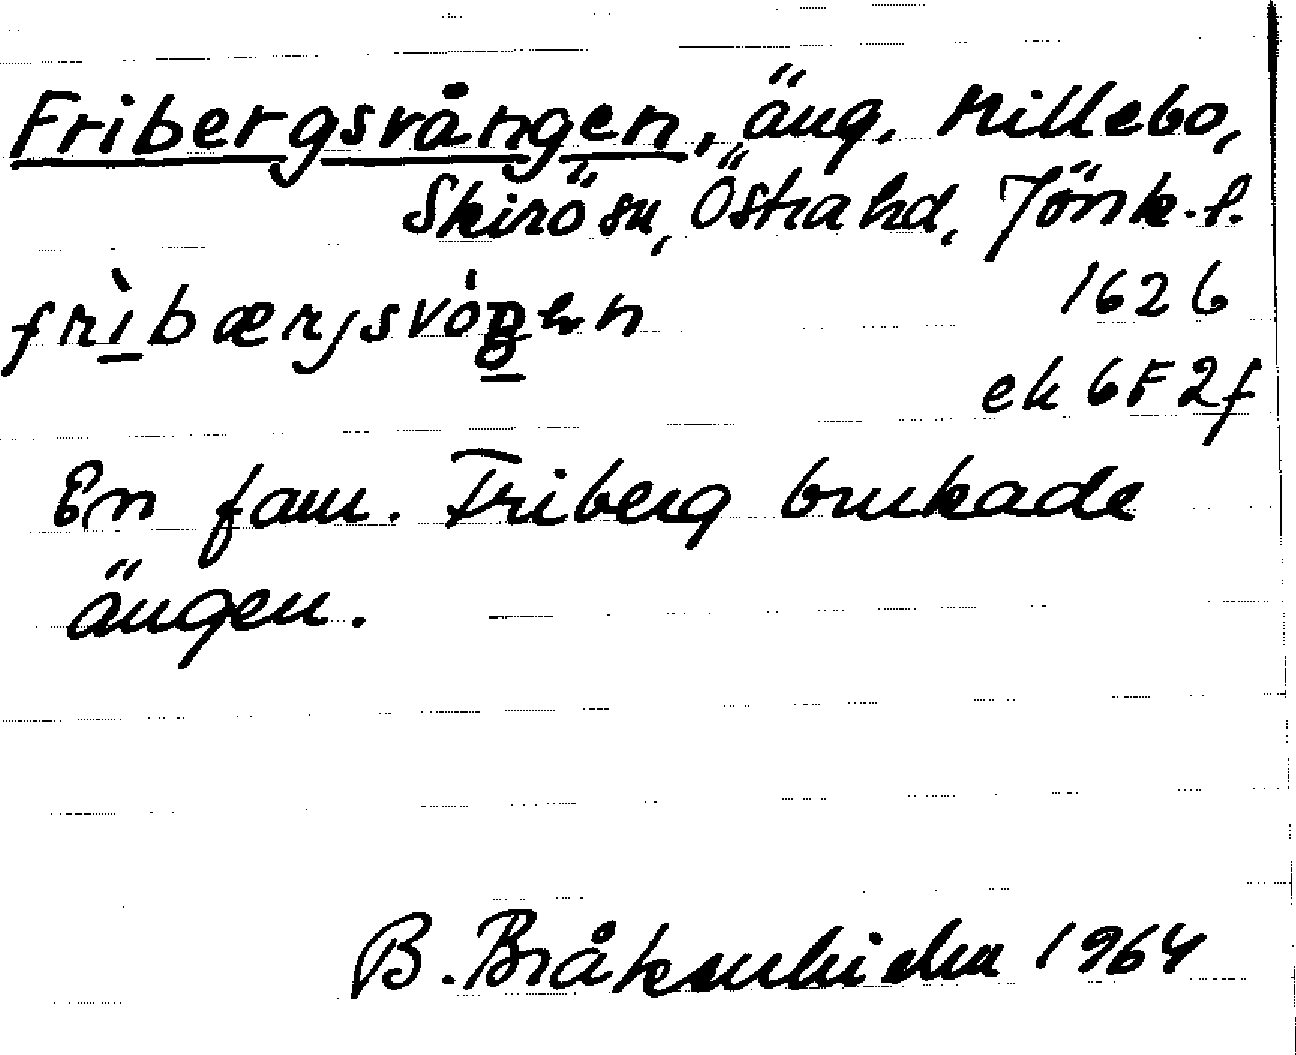 Fribergsvången, äng, Millebo,
Skirö sn, Östra hd, Jönk. l.
frìbærjsvóŋən 1626
ek 6F2f
En fam. Friberg brukade
ängen.
B. 1964